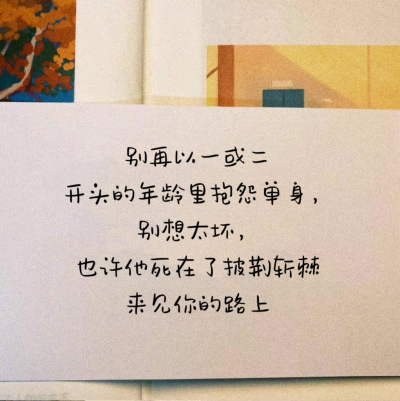 别再以一或二
开头的年龄里抱怨单身，
别想太坏，
也许他死在了披荆斩棘
来见你的路上